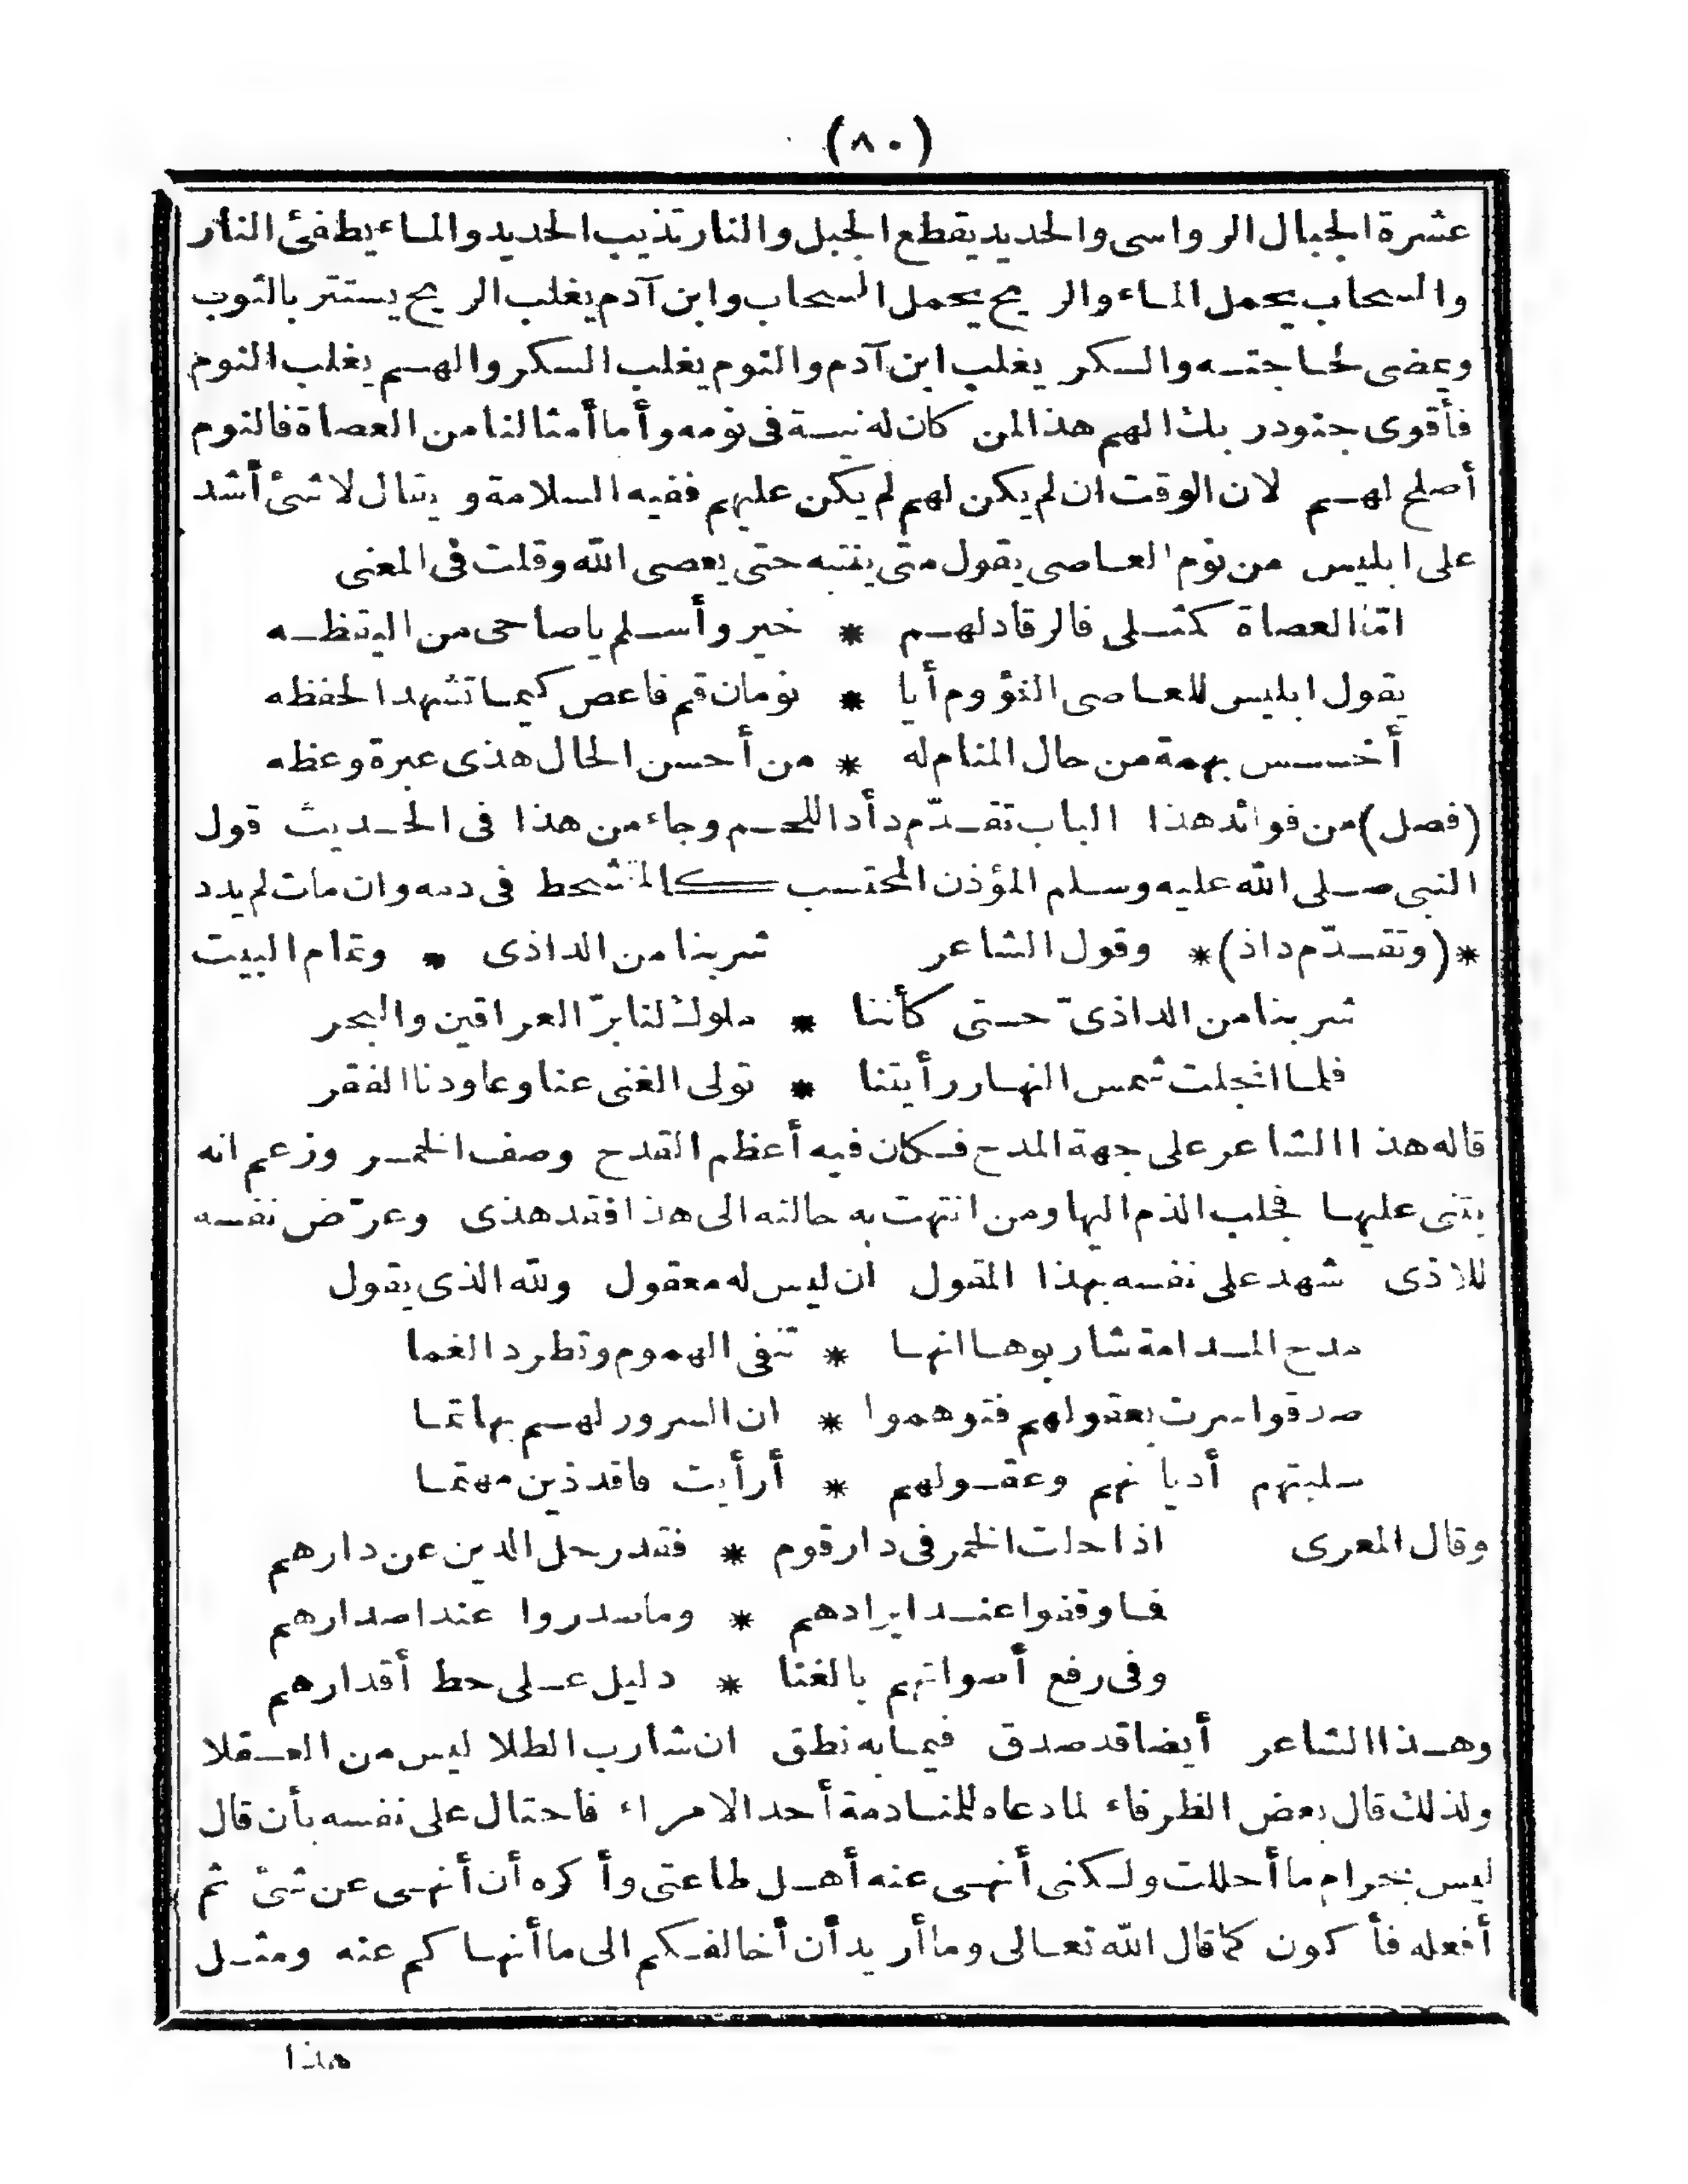 (٨٠)
عشرة الجبال الرواسى والحديد يقطع الجبل والنار تذيب الحديد والماء يطفئ النار
والسحاب يحمل الماء والريح يحمل السحاب وابن آدم يغلب الريح يستتر بالثوب
ويمضى لحاجته والسكر يغلب ابن آدم والنوم يغلب السكر والهم يغلب النوم
فأقوى جنود ربك الهم هذا لمن كان له نية فى نومه وأما أمثالنا من العصاة فالنوم
أصلح لهم لان الوقت ان لم يكن لهم لم يكن عليهم ففيه السلامة ويقال لا شئ أشد
على ابليس من نوم العاصى يقول متى ينتبه حتى يعصى الله وقلت فى المعنى
امّا العصاة كمثلى فالرقاد لهم * خير وأسلم يا صاحى من اليقظه
يقول ابليس للعاصى النؤوم أيا * نومان قم فاعص كيما تشهد الحفظه
أخسس بهمة من حال المنام له * من أحسن الحال هذى عبرة وعظه
(فصل) من فوائد هذا الباب تقدّم دأدا اللحم وجاء من هذا فى الحديث قول
النبى صلى الله عليه وسلم المؤذن المحتسب كالمتشحط فى دمه وان مات لم يدد
*(وتقدّم داذ)* وقول الشاعر شربنا من الداذى * وتمام البيت
شربنا من الداذىّ حتى كأننا * ملوك لنا برّ العراقين والبحر
فلما انجلت شمس النهار رأيتنا * تولى الغنى عنا وعاودنا الفقر
قاله هذا الشاعر على جهة المدح فكان فيه أعظم القدح وصف الخمر وزعم انه
يثنى عليها فجلب الذم اليها ومن انتهت به حالته الى هذا فقد هذى وعرّض نفسه
للاذى شهد على نفسه بهذا المقول ان ليس له معقول ولله الذى يقول
مدح المدامة شاربوها انها * تنفى الهموم وتطرد الغما
صدقوا سرت بعقولهم فتوهموا * ان السرور لهم بها تما
سلبتهم أديانهم وعقولهم * أرأيت فاقد ذين مهتما
وقال المعرى اذا حلت الخمر فى دار قوم * فقد رحل الدين عن دارهم
فما وقفوا عند ايرادهم * وما سدروا عند اصدارهم
وفى رفع أصواتهم بالغنا * دليل على حط أقدارهم
وهذا الشاعر أيضا قد صدق فيما به نطق ان شارب الطلا ليس من العقلا
ولذلك قال بعض الظرفاء لما دعاه للمنادمة أحد الامراء فاحتال على نفسه بأن قال
ليس بحرام ما أحللت ولكنى أنهى عنه أهل طاعتى وأكره أن أنهى عن شئ ثم
أفعله فأكون كما قال الله تعالى وما أريد أن أخالفكم الى ما أنهاكم عنه ومثل
هذا